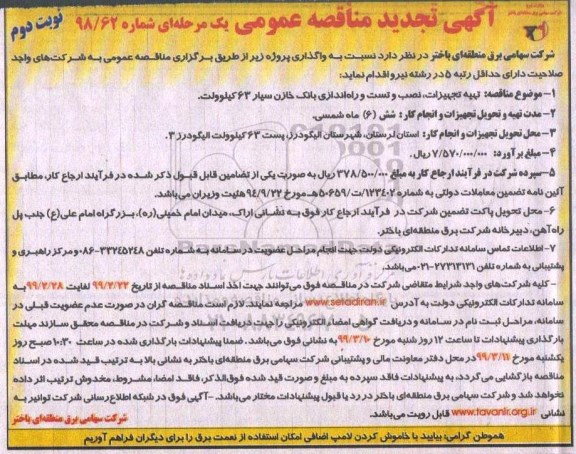 آگهی تجدید مناقصه عمومی یک مرحله‌ای شماره ۹۸/۶۲
نوبت دوم
شرکت سهامی برق منطقه‌ای باختر در نظر دارد نسبت به واگذاری پروژه زیر از طریق برگزاری مناقصه عمومی به شرکت‌های واجد
صلاحیت دارای حداقل رتبه ۵ در رشته نیرو اقدام نماید:
۱- موضوع مناقصه: تهیه تجهیزات، نصب و تست و راه‌اندازی بانک خازن سیار ۶۳ کیلوولت.
۲- مدت تهیه و تحویل تجهیزات و انجام کار: شش (۶) ماه شمسی.
۳- محل تحویل تجهیزات و انجام کار: استان لرستان، شهرستان الیگودرز، پست ۶۳ کیلوولت الیگودرز ۳.
۴- مبلغ برآورد: ۷/۵۷۰/۰۰۰/۰۰۰ ریال.
۵- سپرده شرکت در فرآیند ارجاع کار به مبلغ ۳۷۸/۵۰۰/۰۰۰ ریال به صورت یکی از تضامین قابل قبول ذکر شده در فرآیند ارجاع کار، مطابق
آئین نامه تضمین معاملات دولتی به شماره ۱۲۳۴۰۲/ت۵۰۶۵۹هـ مورخ ۹۴/۹/۲۲ هئیت وزیران می‌باشد.
۶- محل تحویل پاکت تضمین شرکت در فرآیند ارجاع کار فوق به نشانی اراک، میدان امام خمینی(ره)، بزرگراه امام علی(ع) جنب پل
راه‌آهن، دبیرخانه شرکت برق منطقه‌ای باختر.
۷- اطلاعات تماس سامانه تدارکات الکترونیکی دولت جهت انجام مراحل عضویت در سامانه به شماره تلفن ۳۳۲۴۵۲۴۸-۰۸۶ و مرکز راهبری و
پشتیبانی به شماره تلفن ۲۷۳۱۳۱۳۱-۰۲۱ می‌باشد.
- کلیه شرکت‌های واجد شرایط متقاضی شرکت در مناقصه فوق می‌توانند جهت اخذ اسناد مناقصه از تاریخ ۹۹/۲/۲۲ لغایت ۹۹/۲/۲۸ به
سامانه تدارکات الکترونیکی دولت به آدرس www.setadiran.ir مراجعه نمایند. لازم است مناقصه گران در صورت عدم عضویت قبلی در
مراحل ثبت نام در سامانه و دریافت گواهی امضاء الکترونیکی را جهت دریافت اسناد و شرکت در مناقصه محقق سازند مهلت
بارگذاری پیشنهادات تا ساعت ۱۲ روز شنبه مورخ ۹۹/۳/۱۰ به نشانی فوق می‌باشد. ضمنا پیشنهادات بارگذاری شده در ساعت ۱۰:۳۰ صبح روز
یکشنبه مورخ ۹۹/۳/۱۱ در محل دفتر معاونت مالی و پشتیبانی شرکت سهامی برق منطقه‌ای باختر به نشانی بالا به ترتیب قید شده در اسناد
مناقصه بازگشایی می‌گردد. به پیشنهادات فاقد سپرده به مبلغ و صورت قید شده فوق‌الذکر، فاقد امضا، مشروط، مخدوش ترتیب اثر داده
نخواهد شد و شرکت سهامی برق منطقه‌ای باختر در رد یا قبول پیشنهادات مختار می‌باشد. - آگهی فوق در شبکه اطلاع‌رسانی شرکت توانیر به
نشانی www.tavanir.org.ir قابل رویت می‌باشد.
شرکت سهامی برق منطقه‌ای باختر
هموطن گرامی: بیایید با خاموش کردن لامپ اضافی امکان استفاده از نعمت برق را برای دیگران فراهم آوریم